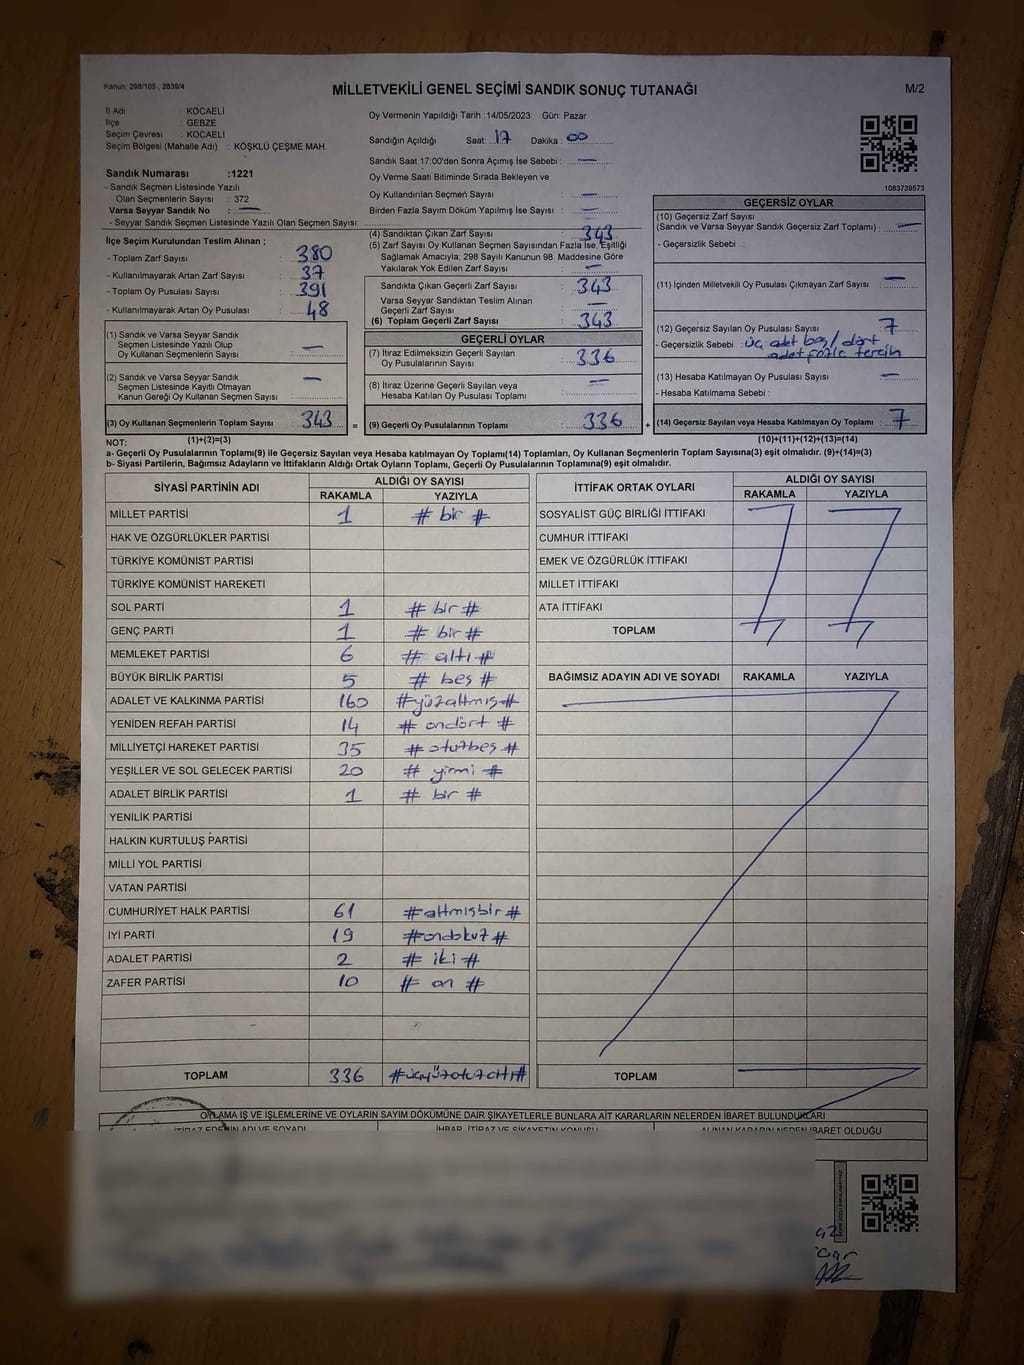 Kanun: 298/105 , 2839/4
MİLLETVEKİLİ GENEL SEÇİMİ SANDIK SONUÇ TUTANAĞI
M/2
İl Adı : KOCAELİ
İlçe : GEBZE
Seçim Çevresi : KOCAELİ
Seçim Bölgesi (Mahalle Adı) : KÖŞKLÜ ÇEŞME MAH.
Sandık Numarası :1221
- Sandık Seçmen Listesinde Yazılı
Olan Seçmenlerin Sayısı : 372
Varsa Seyyar Sandık No : —
- Seyyar Sandık Seçmen Listesinde Yazılı Olan Seçmen Sayısı:
İlçe Seçim Kurulundan Teslim Alınan ;
- Toplam Zarf Sayısı : 380
- Kullanılmayarak Artan Zarf Sayısı : 37
- Toplam Oy Pusulası Sayısı : 391
- Kullanılmayarak Artan Oy Pusulası : 48
(1) Sandık ve Varsa Seyyar Sandık
Seçmen Listesinde Yazılı Olup
Oy Kullanan Seçmenlerin Sayısı : —
(2) Sandık ve Varsa Seyyar Sandık
Seçmen Listesinde Kayıtlı Olmayan
Kanun Gereği Oy Kullanan Seçmen Sayısı : —
(3) Oy Kullanan Seçmenlerin Toplam Sayısı : 343
Oy Vermenin Yapıldığı Tarih :14/05/2023 Gün: Pazar
Sandığın Açıldığı Saat: 17 Dakika : 00
Sandık Saat 17:00'den Sonra Açımış İse Sebebi : —
Oy Verme Saati Bitiminde Sırada Bekleyen ve
Oy Kullandırılan Seçmen Sayısı : —
Birden Fazla Sayım Döküm Yapılmış İse Sayısı : —
(4) Sandıktan Çıkan Zarf Sayısı : 343
(5) Zarf Sayısı Oy Kullanan Seçmen Sayısından Fazla İse, Eşitliği
Sağlamak Amacıyla; 298 Sayılı Kanunun 98. Maddesine Göre
Yakılarak Yok Edilen Zarf Sayısı : —
Sandıkta Çıkan Geçerli Zarf Sayısı : 343
Varsa Seyyar Sandıktan Teslim Alınan
Geçerli Zarf Sayısı : —
(6) Toplam Geçerli Zarf Sayısı : 343
GEÇERLİ OYLAR
(7) İtiraz Edilmeksizin Geçerli Sayılan
Oy Pusulalarının Sayısı : 336
(8) İtiraz Üzerine Geçerli Sayılan veya
Hesaba Katılan Oy Pusulası Toplamı : —
= (9) Geçerli Oy Pusulalarının Toplamı : 336 +
1083739573
GEÇERSİZ OYLAR
(10) Geçersiz Zarf Sayısı
(Sandık ve Varsa Seyyar Sandık Geçersiz Zarf Toplamı) : —
- Geçersizlik Sebebi :
(11) İçinden Milletvekili Oy Pusulası Çıkmayan Zarf Sayısı : —
(12) Geçersiz Sayılan Oy Pusulası Sayısı : 7
- Geçersizlik Sebebi : üç adet boş / dört
adet fazla tercih
(13) Hesaba Katılmayan Oy Pusulası Sayısı : —
- Hesaba Katılmama Sebebi :
(14) Geçersiz Sayılan veya Hesaba Katılmayan Oy Toplamı : 7
NOT: (1)+(2)=(3) (10)+(11)+(12)+(13)=(14)
a- Geçerli Oy Pusulalarının Toplamı(9) ile Geçersiz Sayılan veya Hesaba katılmayan Oy Toplamı(14) Toplamları, Oy Kullanan Seçmenlerin Toplam Sayısına(3) eşit olmalıdır. (9)+(14)=(3)
b- Siyasi Partilerin, Bağımsız Adayların ve İttifakların Aldığı Ortak Oyların Toplamı, Geçerli Oy Pusulalarının Toplamına(9) eşit olmalıdır.
SİYASİ PARTİNİN ADI ALDIĞI OY SAYISI
RAKAMLA YAZIYLA
MİLLET PARTİSİ 1 # bir #
HAK VE ÖZGÜRLÜKLER PARTİSİ
TÜRKİYE KOMÜNİST PARTİSİ
TÜRKİYE KOMÜNİST HAREKETİ
SOL PARTİ 1 # bir #
GENÇ PARTİ 1 # bir #
MEMLEKET PARTİSİ 6 # altı #
BÜYÜK BİRLİK PARTİSİ 5 # beş #
ADALET VE KALKINMA PARTİSİ 160 #yüzaltmış#
YENİDEN REFAH PARTİSİ 14 # ondört #
MİLLİYETÇİ HAREKET PARTİSİ 35 # otuzbeş #
YEŞİLLER VE SOL GELECEK PARTİSİ 20 # yirmi #
ADALET BİRLİK PARTİSİ 1 # bir #
YENİLİK PARTİSİ
HALKIN KURTULUŞ PARTİSİ
MİLLİ YOL PARTİSİ
VATAN PARTİSİ
CUMHURİYET HALK PARTİSİ 61 #altmışbir #
İYİ PARTİ 19 #ondokuz #
ADALET PARTİSİ 2 # iki #
ZAFER PARTİSİ 10 # on #
TOPLAM 336 #üçyüzotuzaltı#
İTTİFAK ORTAK OYLARI ALDIĞI OY SAYISI
RAKAMLA YAZIYLA
SOSYALİST GÜÇ BİRLİĞİ İTTİFAKI
CUMHUR İTTİFAKI
EMEK VE ÖZGÜRLÜK İTTİFAKI
MİLLET İTTİFAKI
ATA İTTİFAKI
TOPLAM
BAĞIMSIZ ADAYIN ADI VE SOYADI RAKAMLA YAZIYLA
TOPLAM
OYLAMA İŞ VE İŞLEMLERİNE VE OYLARIN SAYIM DÖKÜMÜNE DAİR ŞİKAYETLERLE BUNLARA AİT KARARLARIN NELERDEN İBARET BULUNDUKLARI
İTİRAZ EDENİN ADI VE SOYADI İHBAR, İTİRAZ VE ŞİKAYETİN KONUSU ALINAN KARARIN NEDEN İBARET OLDUĞU